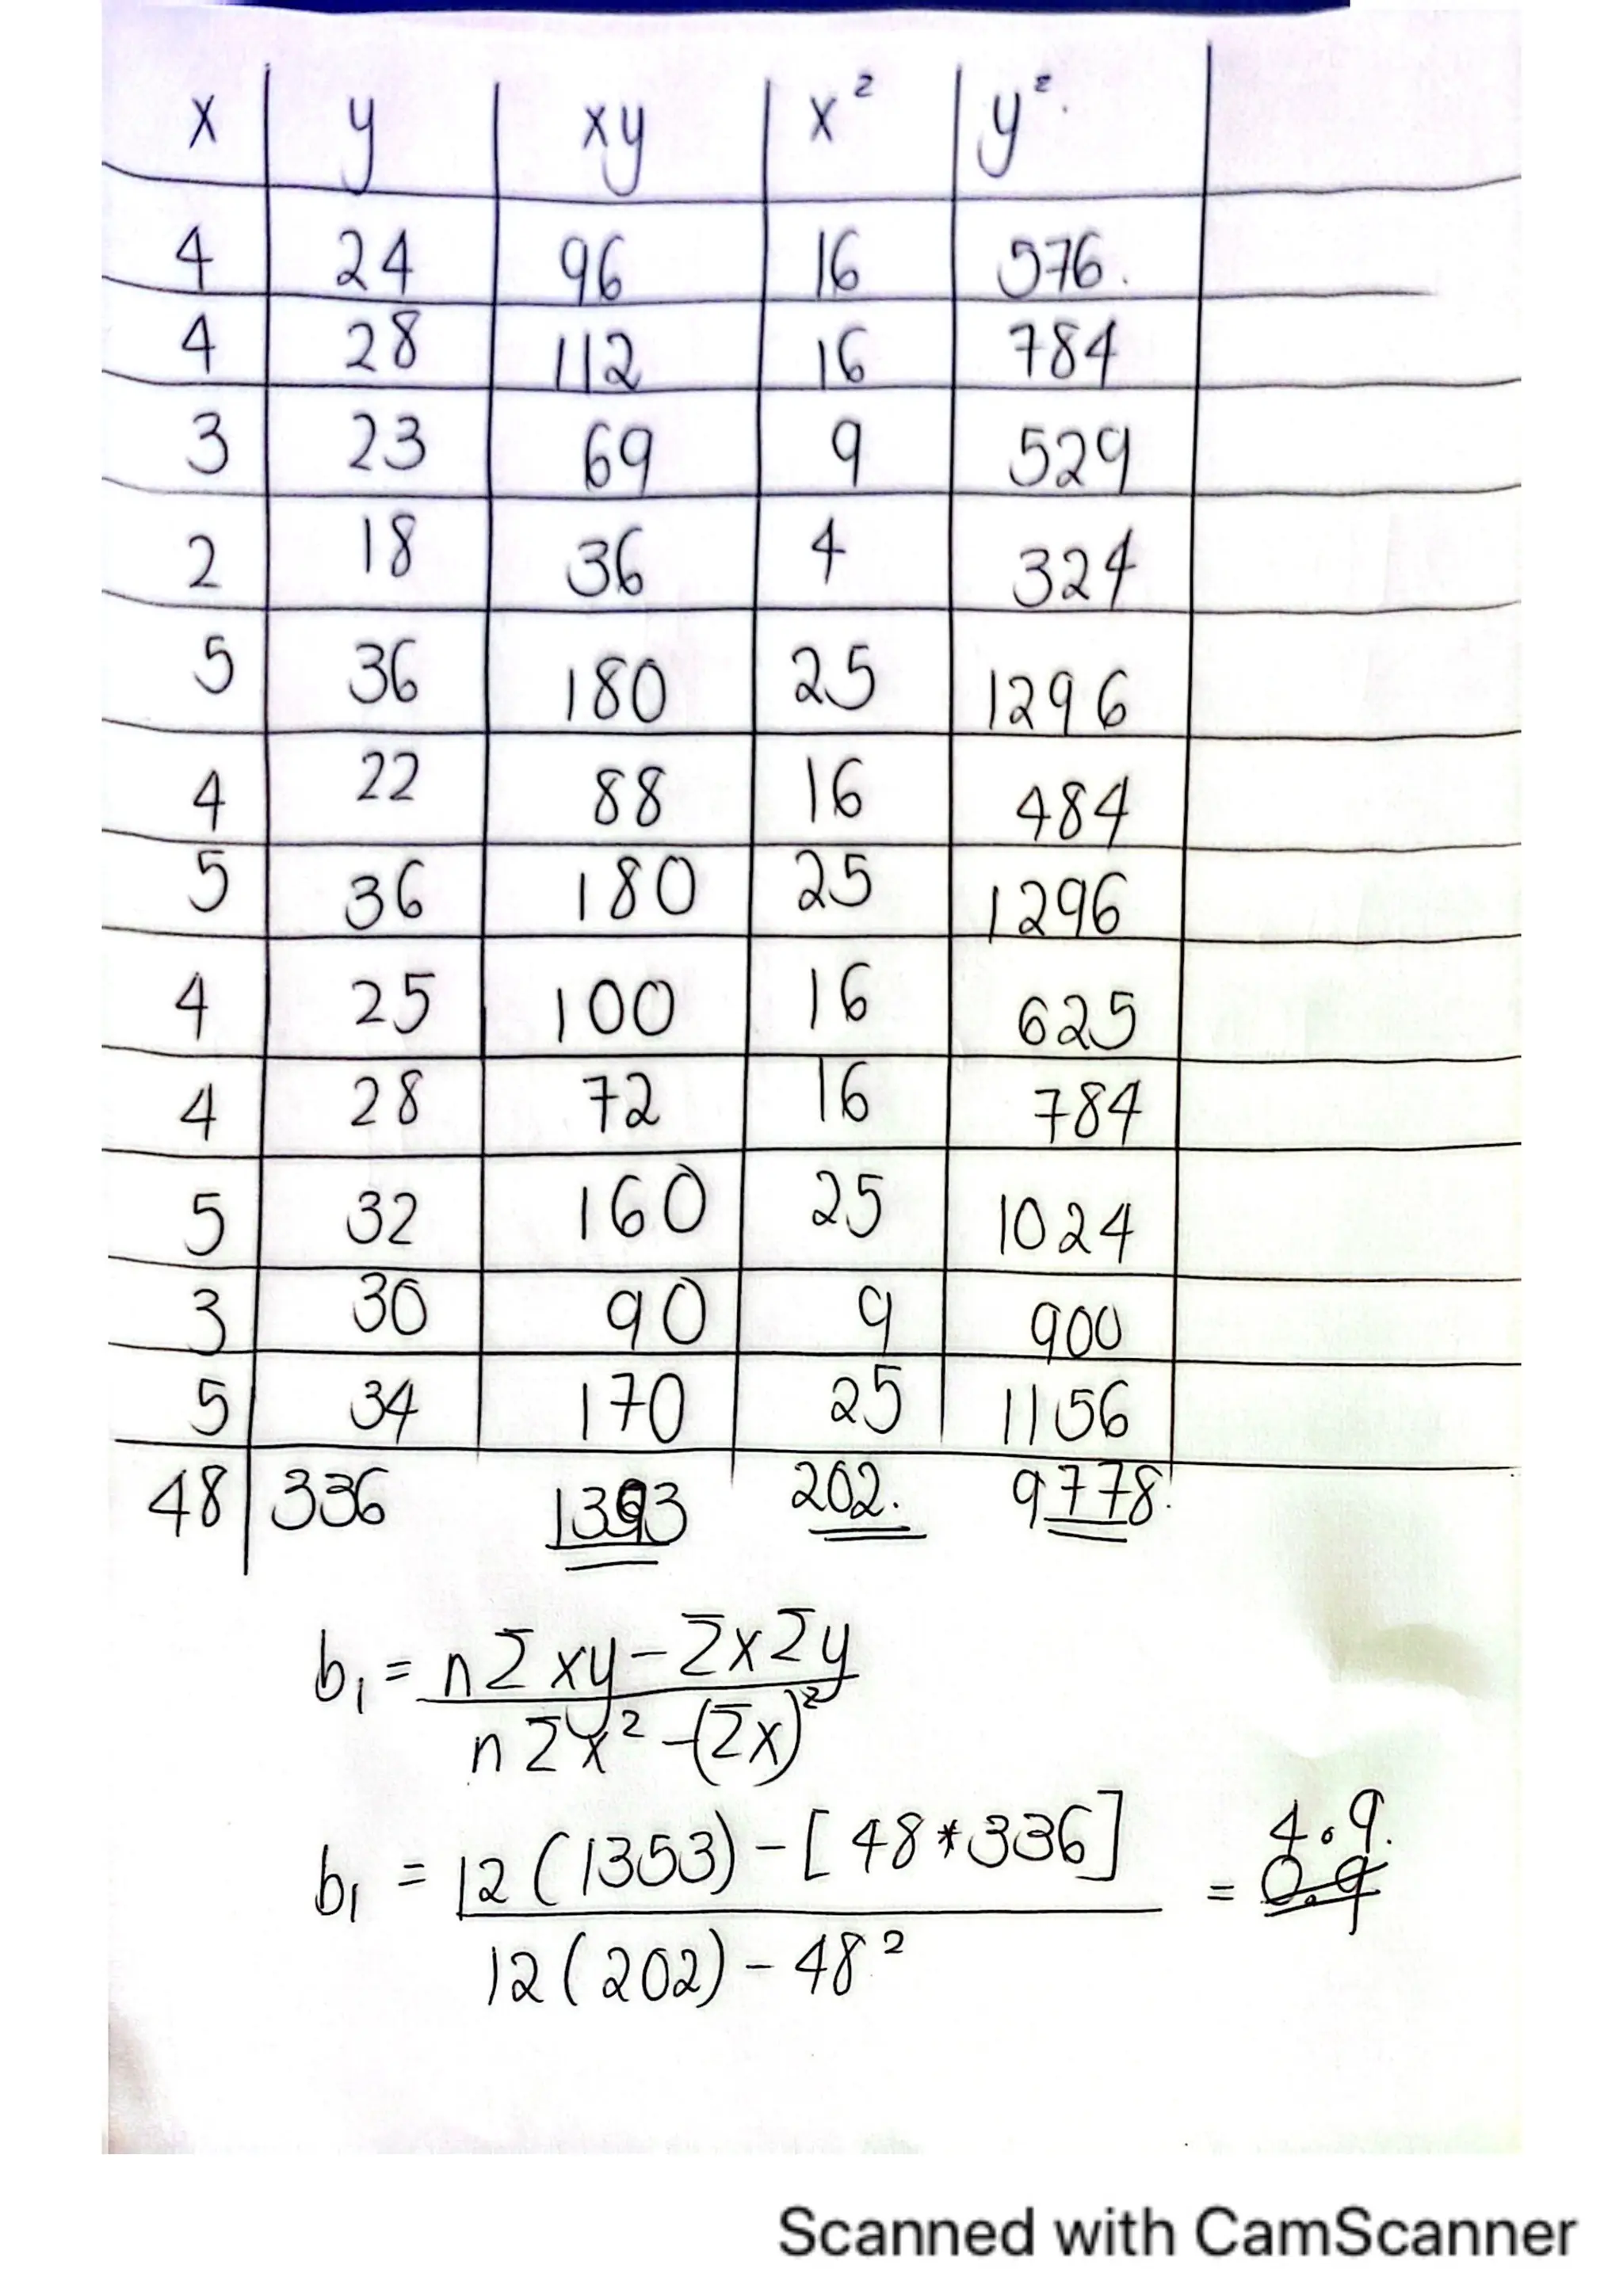 x y xy x² y².
4 24 96 16 576.
4 28 112 16 784
3 23 69 9 529
2 18 36 4 324
5 36 180 25 1296
4 22 88 16 484
5 36 180 25 1296
4 25 100 16 625
4 28 72 16 784
5 32 160 25 1024
3 30 90 9 900
5 34 170 25 1156
48 336 1393 202. 9778.
b₁ = nΣxy - ΣxΣy
nΣx² - (Σx)²
b₁ = 12(1353) - [48*336] = 4.9.
0.9
12(202) - 48²
Scanned with CamScanner